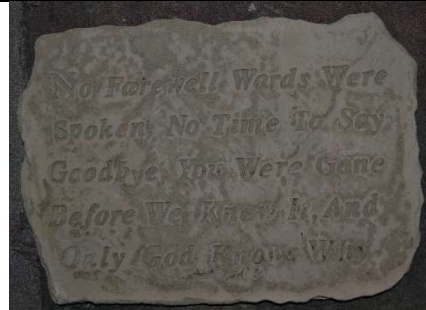 No Farewell Words Were
Spoken, No Time To Say
Goodbye, You Were Gone
Before We Knew It, And
Only God Knows Why